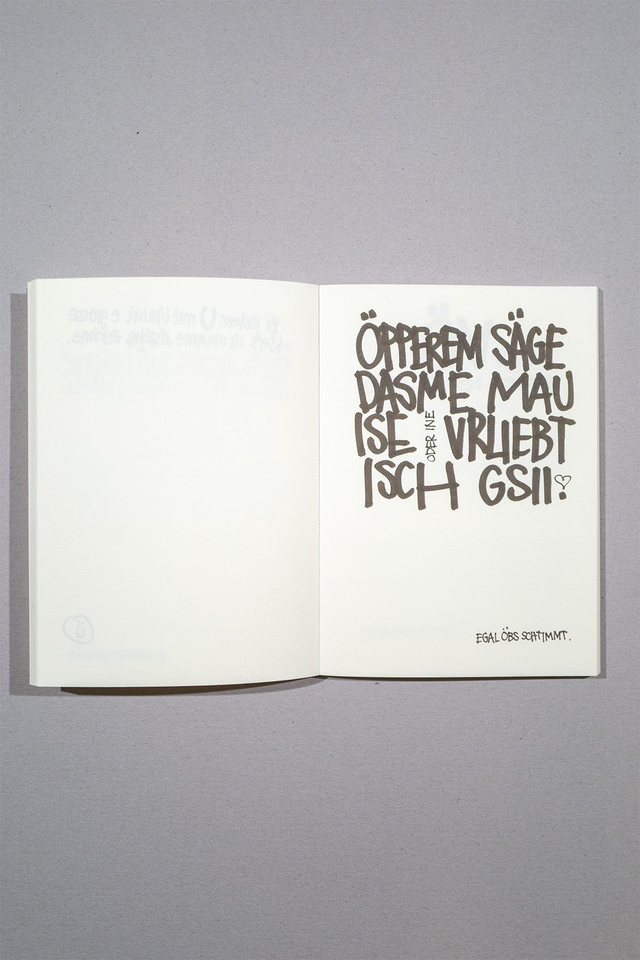 ÖPPEREM SÄGE
DASME MAU
ISE ODER INE VRLIEBT
ISCH GSII!
EGAL ÖBS SCHTIMMT.